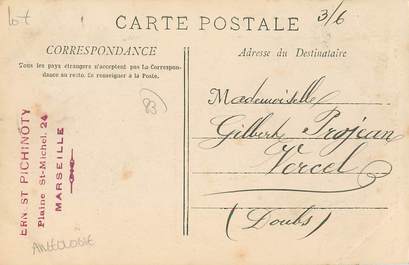 Lot
CARTE POSTALE
3/6
CORRESPONDANCE
Tous les pays étrangers n'acceptent pas La Correspon-
dance au recto. Se renseigner à la Poste.
Adresse du Destinataire
83
ERNEST PICHINOTY
Plaine St-Michel, 24
MARSEILLE
Mademoiselle
Gilbert Projean
Vercel
(Doubs)